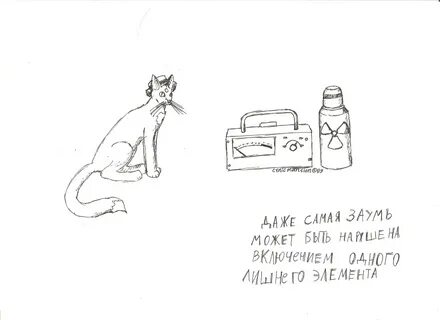 ДАЖЕ САМАЯ ЗАУМЬ
МОЖЕТ БЫТЬ НАРУШЕНА
ВКЛЮЧЕНИЕМ ОДНОГО
ЛИШНЕГО ЭЛЕМЕНТА